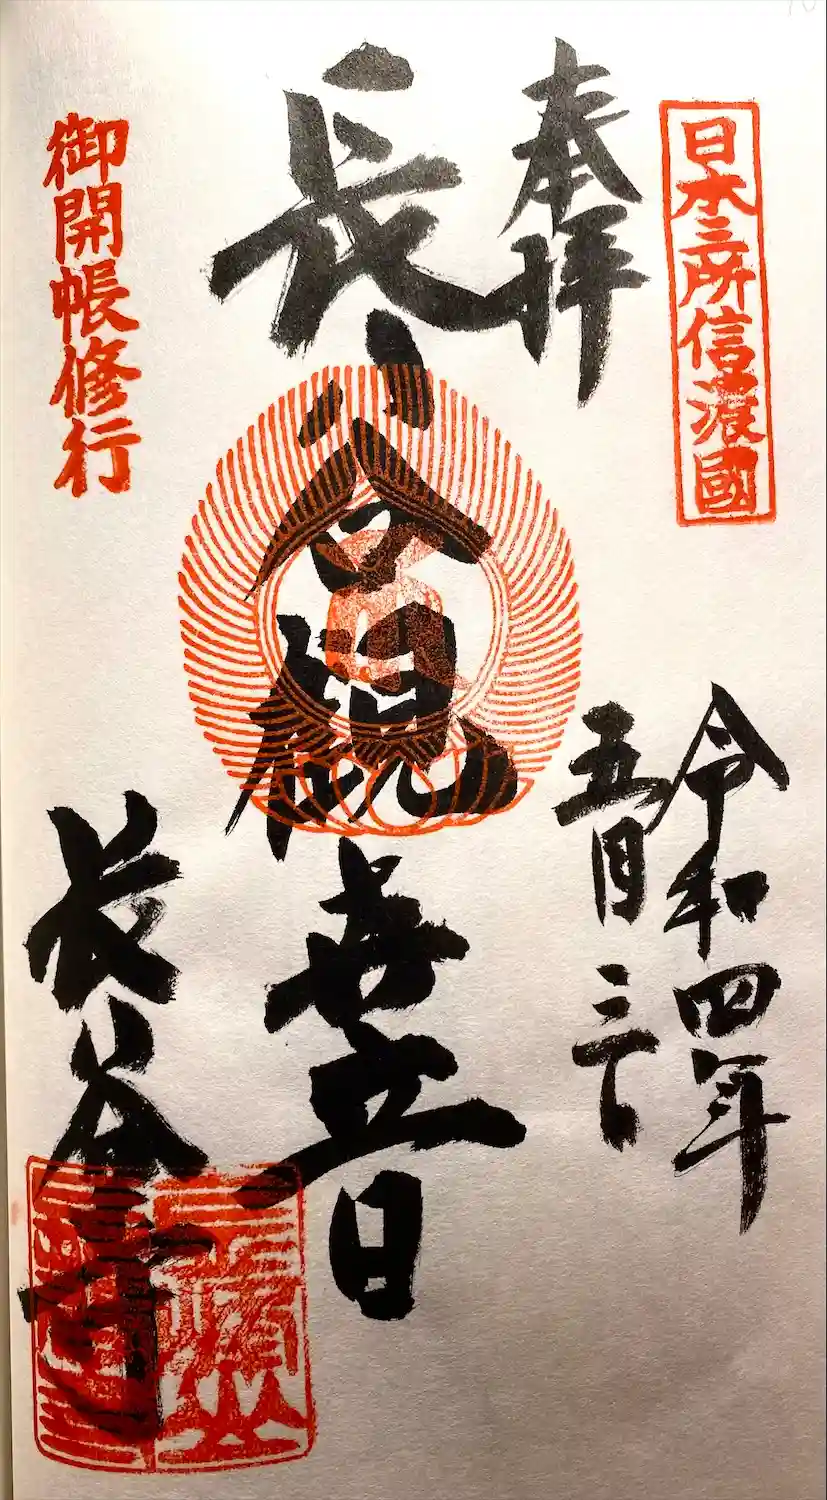 日本三所信濃國
奉拝
令和四年
五月三日
長谷観世音
長谷寺
御開帳修行